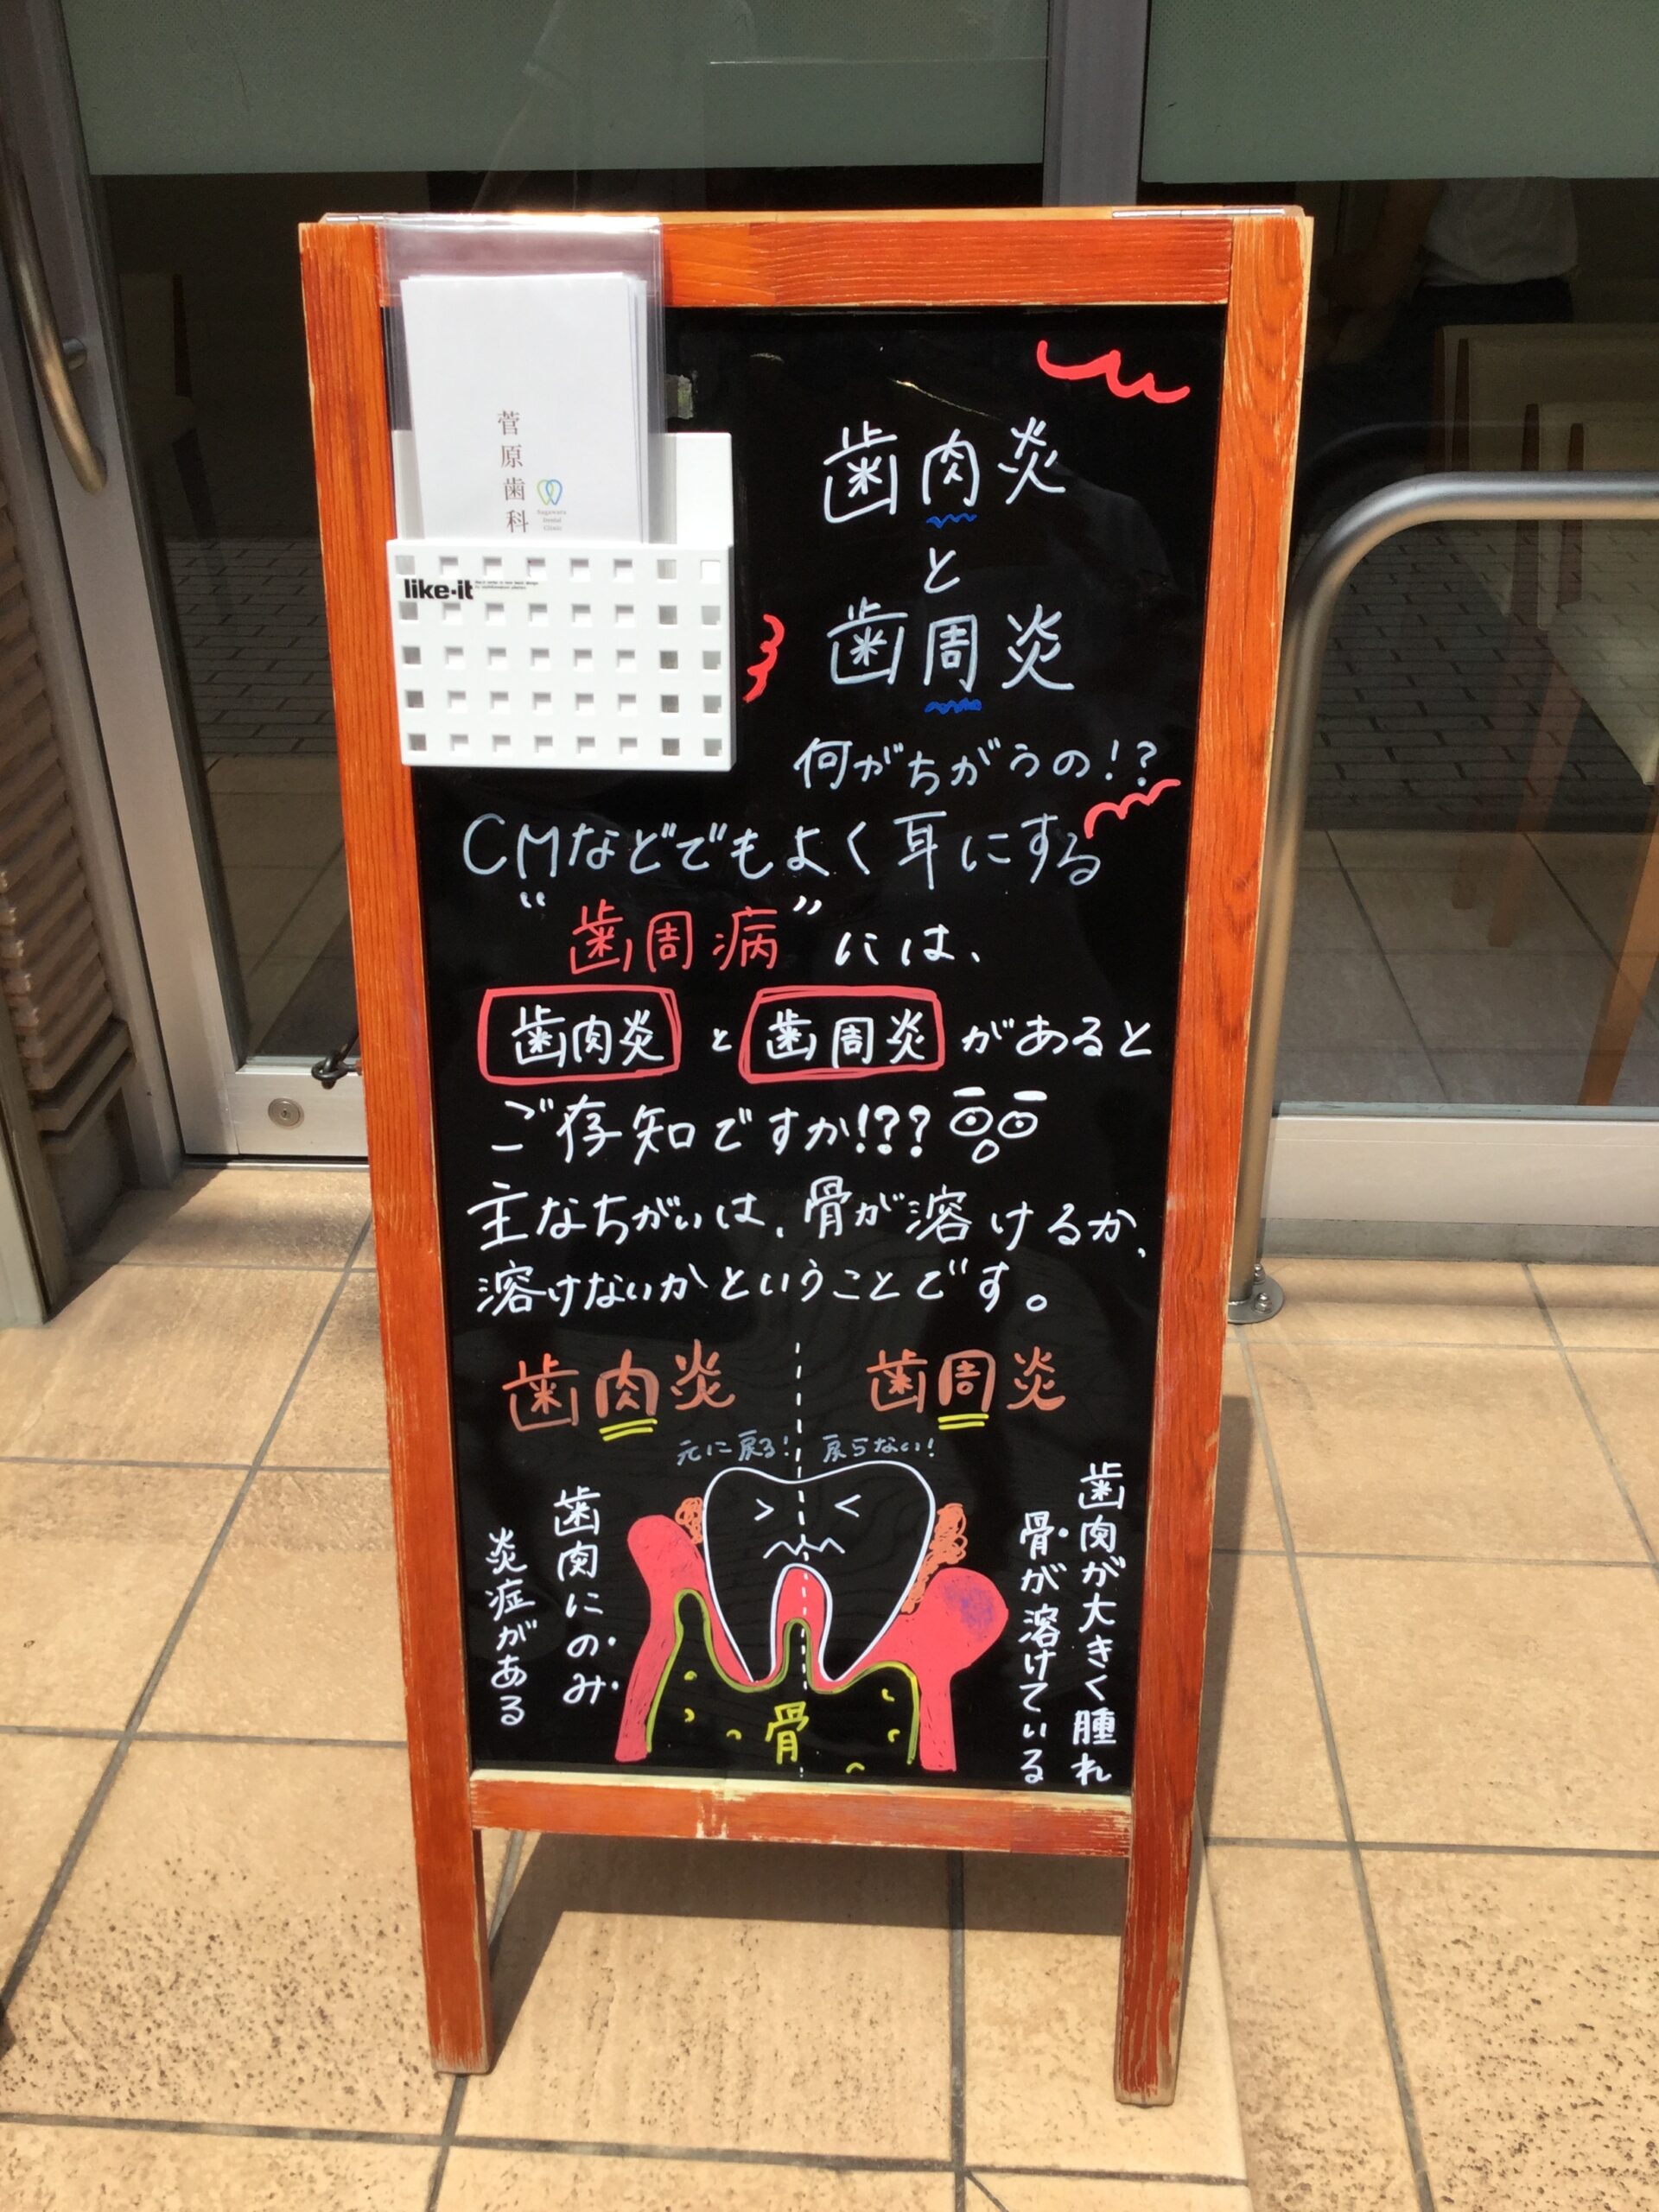 菅原歯科
Sugawara
Dental
Clinic
like-it
歯肉炎
と
歯周炎
何がちがうの!?
CMなどでもよく耳にする
“歯周病”には、
歯肉炎と歯周炎があると
ご存知ですか!??
主なちがいは、骨が溶けるか、
溶けないかということです。
歯肉炎
歯周炎
元に戻る!
戻らない!
歯肉にのみ
炎症がある
歯肉が大きく腫れ
骨が溶けている
骨